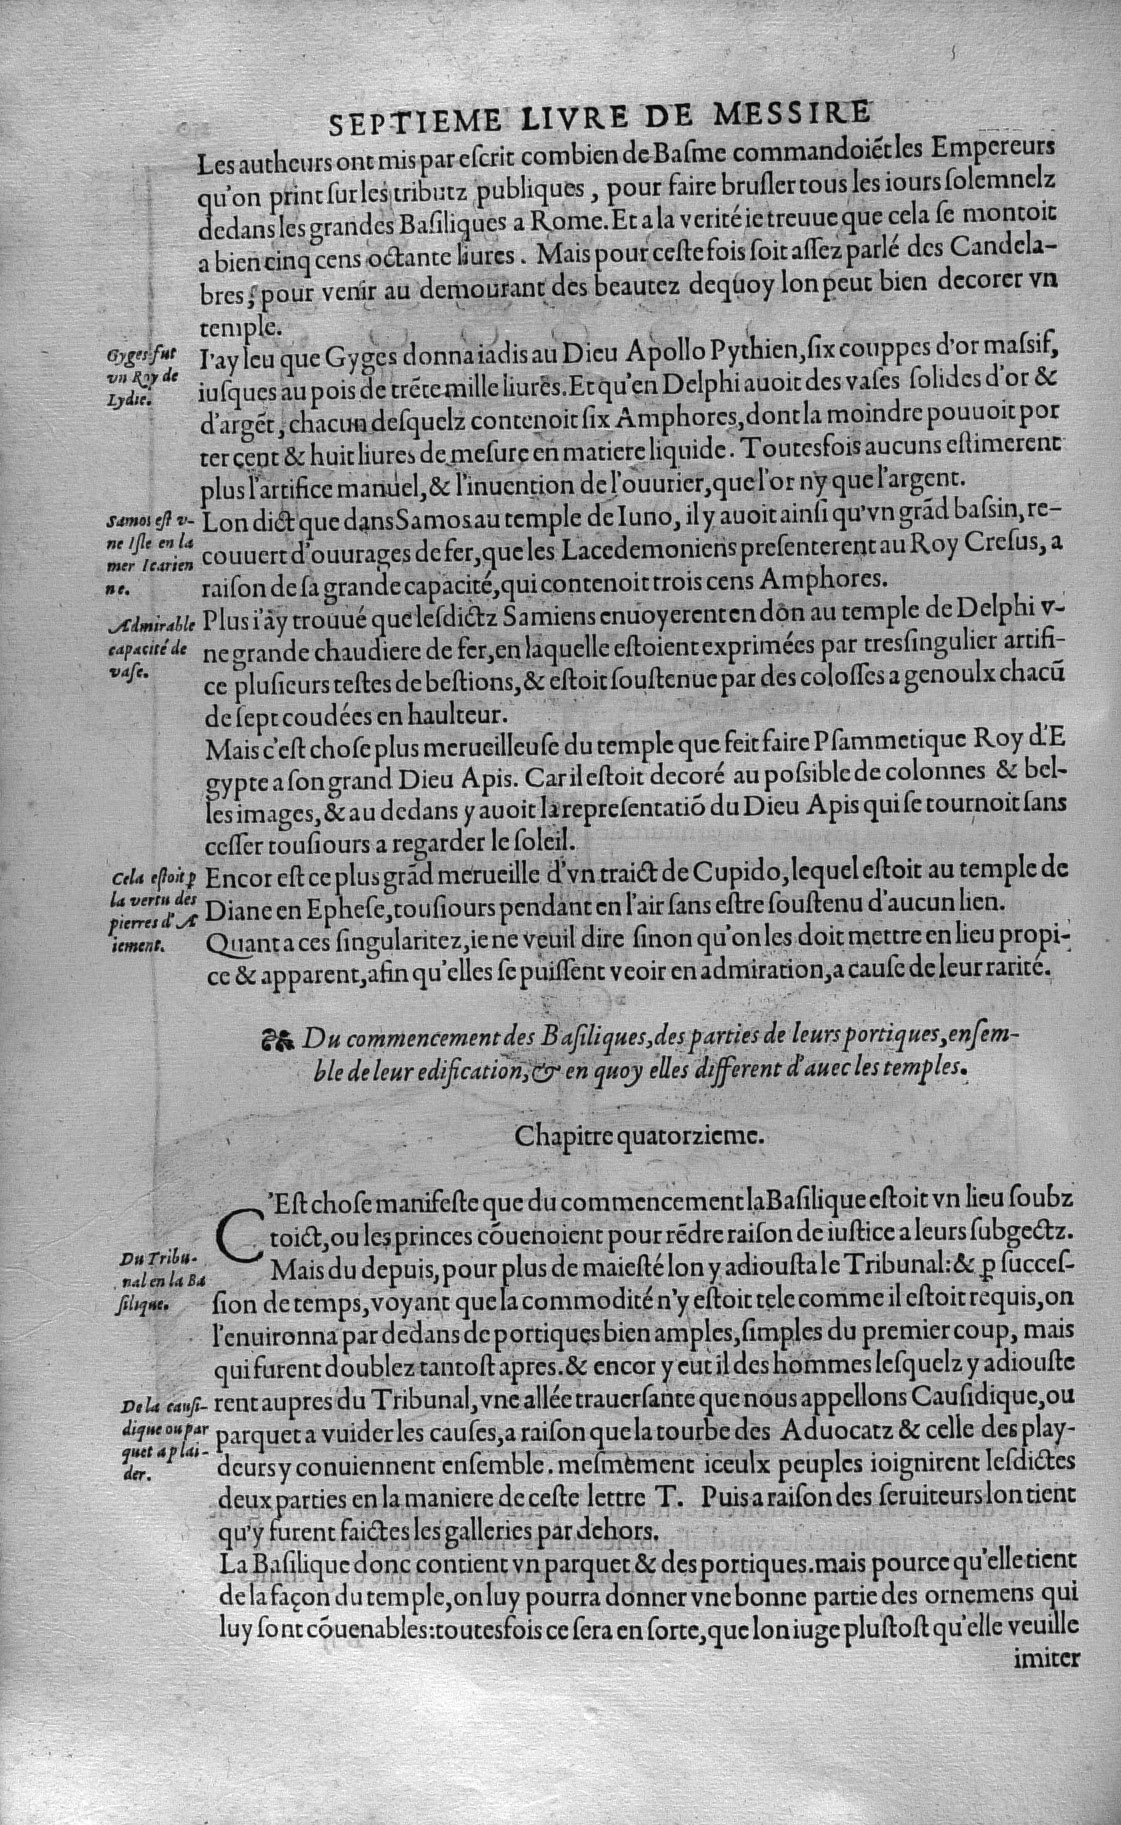 SEPTIEME LIVRE DE MESSIRE
Les autheurs ont mis par eſcrit combien de Baſme commandoiẽt les Empereurs
qu'on print ſur les tributz publiques, pour faire bruſler tous les iours ſolemnelz
dedans les grandes Baſiliques a Rome. Et a la verité ie treuue que cela ſe montoit
a bien cinq cens octante liures. Mais pour ceſte fois ſoit aſſez parlé des Candela-
bres, pour venir au demourant des beautez dequoy lon peut bien decorer vn
temple.
Gyges fut
vn Roy de
Lydie.
I'ay leu que Gyges donna iadis au Dieu Apollo Pythien, ſix couppes d'or maſſif,
iuſques au pois de trẽte mille liures. Et qu'en Delphi auoit des vaſes ſolides d'or &
d'argẽt, chacun deſquelz contenoit ſix Amphores, dont la moindre pouuoit por
ter cent & huit liures de meſure en matiere liquide. Toutesfois aucuns eſtimerent
plus l'artifice manuel, & l'inuention de l'ouurier, que l'or n'y que l'argent.
Samos eſt v-
ne Iſle en la
mer Icarien
ne.
Lon dict que dans Samos au temple de Iuno, il y auoit ainſi qu'vn grãd baſsin, re-
couuert d'ouurages de fer, que les Lacedemoniens preſenterent au Roy Creſus, a
raiſon de ſa grande capacité, qui contenoit trois cens Amphores.
Admirable
capacité de
vaſe.
Plus i'ay trouué que leſdictz Samiens enuoyerent en don au temple de Delphi v-
ne grande chaudiere de fer, en laquelle eſtoient exprimées par tresſingulier artifi-
ce pluſieurs teſtes de beſtions, & eſtoit ſouſtenue par des coloſſes a genoulx chacũ
de ſept coudées en haulteur.
Mais c'eſt choſe plus merueilleuſe du temple que feit faire Pſammetique Roy d'E
gypte a ſon grand Dieu Apis. Car il eſtoit decoré au poſsible de colonnes & bel-
les images, & au dedans y auoit la repreſentatiõ du Dieu Apis qui ſe tournoit ſans
ceſſer touſiours a regarder le ſoleil.
Cela eſtoit ꝑ
la vertu des
pierres d'A
iement.
Encor eſt ce plus grãd merueille d'vn traict de Cupido, lequel eſtoit au temple de
Diane en Epheſe, touſiours pendant en l'air ſans eſtre ſouſtenu d'aucun lien.
Quant a ces ſingularitez, ie ne veuil dire ſinon qu'on les doit mettre en lieu propi-
ce & apparent, afin qu'elles ſe puiſſent veoir en admiration, a cauſe de leur rarité.
❧ Du commencement des Baſiliques, des parties de leurs portiques, enſem-
ble de leur edification, & en quoy elles different d'auec les temples.
Chapitre quatorzieme.
C'Eſt choſe manifeſte que du commencement la Baſilique eſtoit vn lieu ſoubz
toict, ou les princes cõuenoient pour rẽdre raiſon de iuſtice a leurs ſubgectz.
Du Tribu-
nal en la Ba
ſilique.
Mais du depuis, pour plus de maieſté lon y adiouſta le Tribunal: & ꝑ ſucceſ-
ſion de temps, voyant que la commodité n'y eſtoit tele comme il eſtoit requis, on
l'enuironna par dedans de portiques bien amples, ſimples du premier coup, mais
qui furent doublez tantoſt apres. & encor y eut il des hommes leſquelz y adiouſte
De la cauſi-
dique ou par
quet a plai-
der.
rent aupres du Tribunal, vne allée trauerſante que nous appellons Cauſidique, ou
parquet a vuider les cauſes, a raiſon que la tourbe des Aduocatz & celle des play-
deurs y conuiennent enſemble. meſmement iceulx peuples ioignirent leſdictes
deux parties en la maniere de ceſte lettre T. Puis a raiſon des ſeruiteurs lon tient
qu'y furent faictes les galleries par dehors.
La Baſilique donc contient vn parquet & des portiques. mais pource qu'elle tient
de la façon du temple, on luy pourra donner vne bonne partie des ornemens qui
luy ſont cõuenables: toutesfois ce ſera en ſorte, que lon iuge pluſtoſt qu'elle veuille
imiter